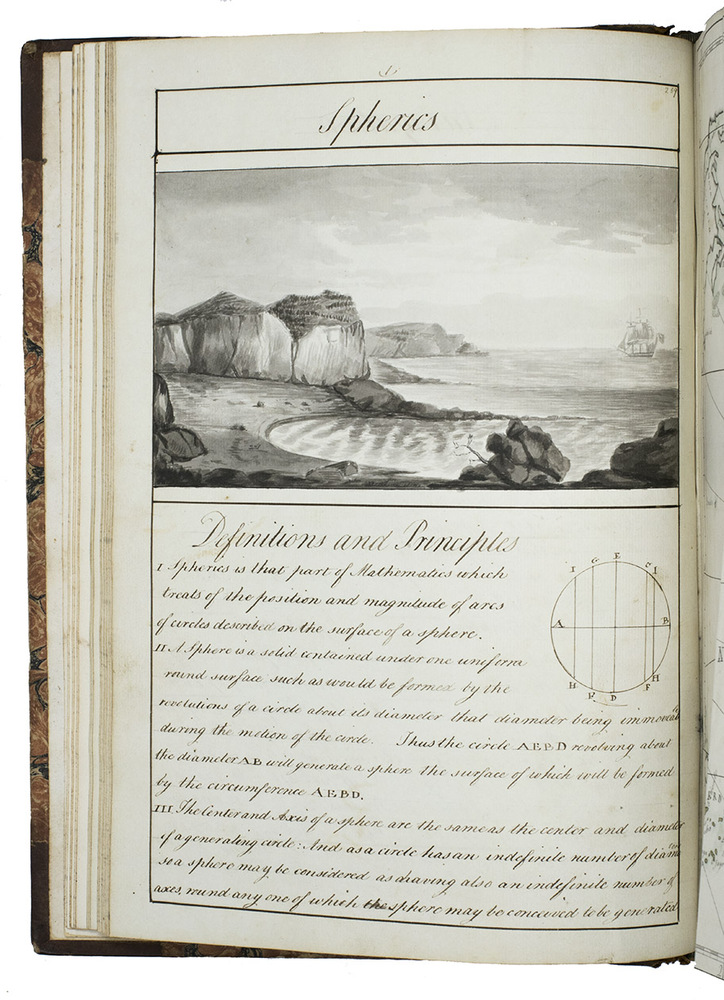 Spherics
Definitions and Principles
I Spherics is that part of Mathematics which
treats of the position and magnitude of arcs
of circles described on the surface of a sphere.
II A Sphere is a solid contained under one uniform
round surface such as would be formed by the
revolutions of a circle about its diameter that diameter being immoveab
during the motion of the circle. Thus the circle AEBD revolving about
the diameter AB will generate a sphere the surface of which will be formed
by the circumference AEBD.
III The Center and Axis of a sphere are the same as the center and diameter
of a generating circle: And as a circle has an indefinite number of diam
so a sphere may be considered as having also an indefinite number of
axes, round any one of which the sphere may be conceived to be generated
I G E G I
A B
H F D F H